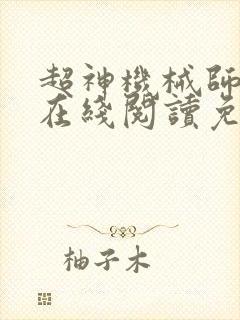 超神機械師
在綫閱讀免
柚子木